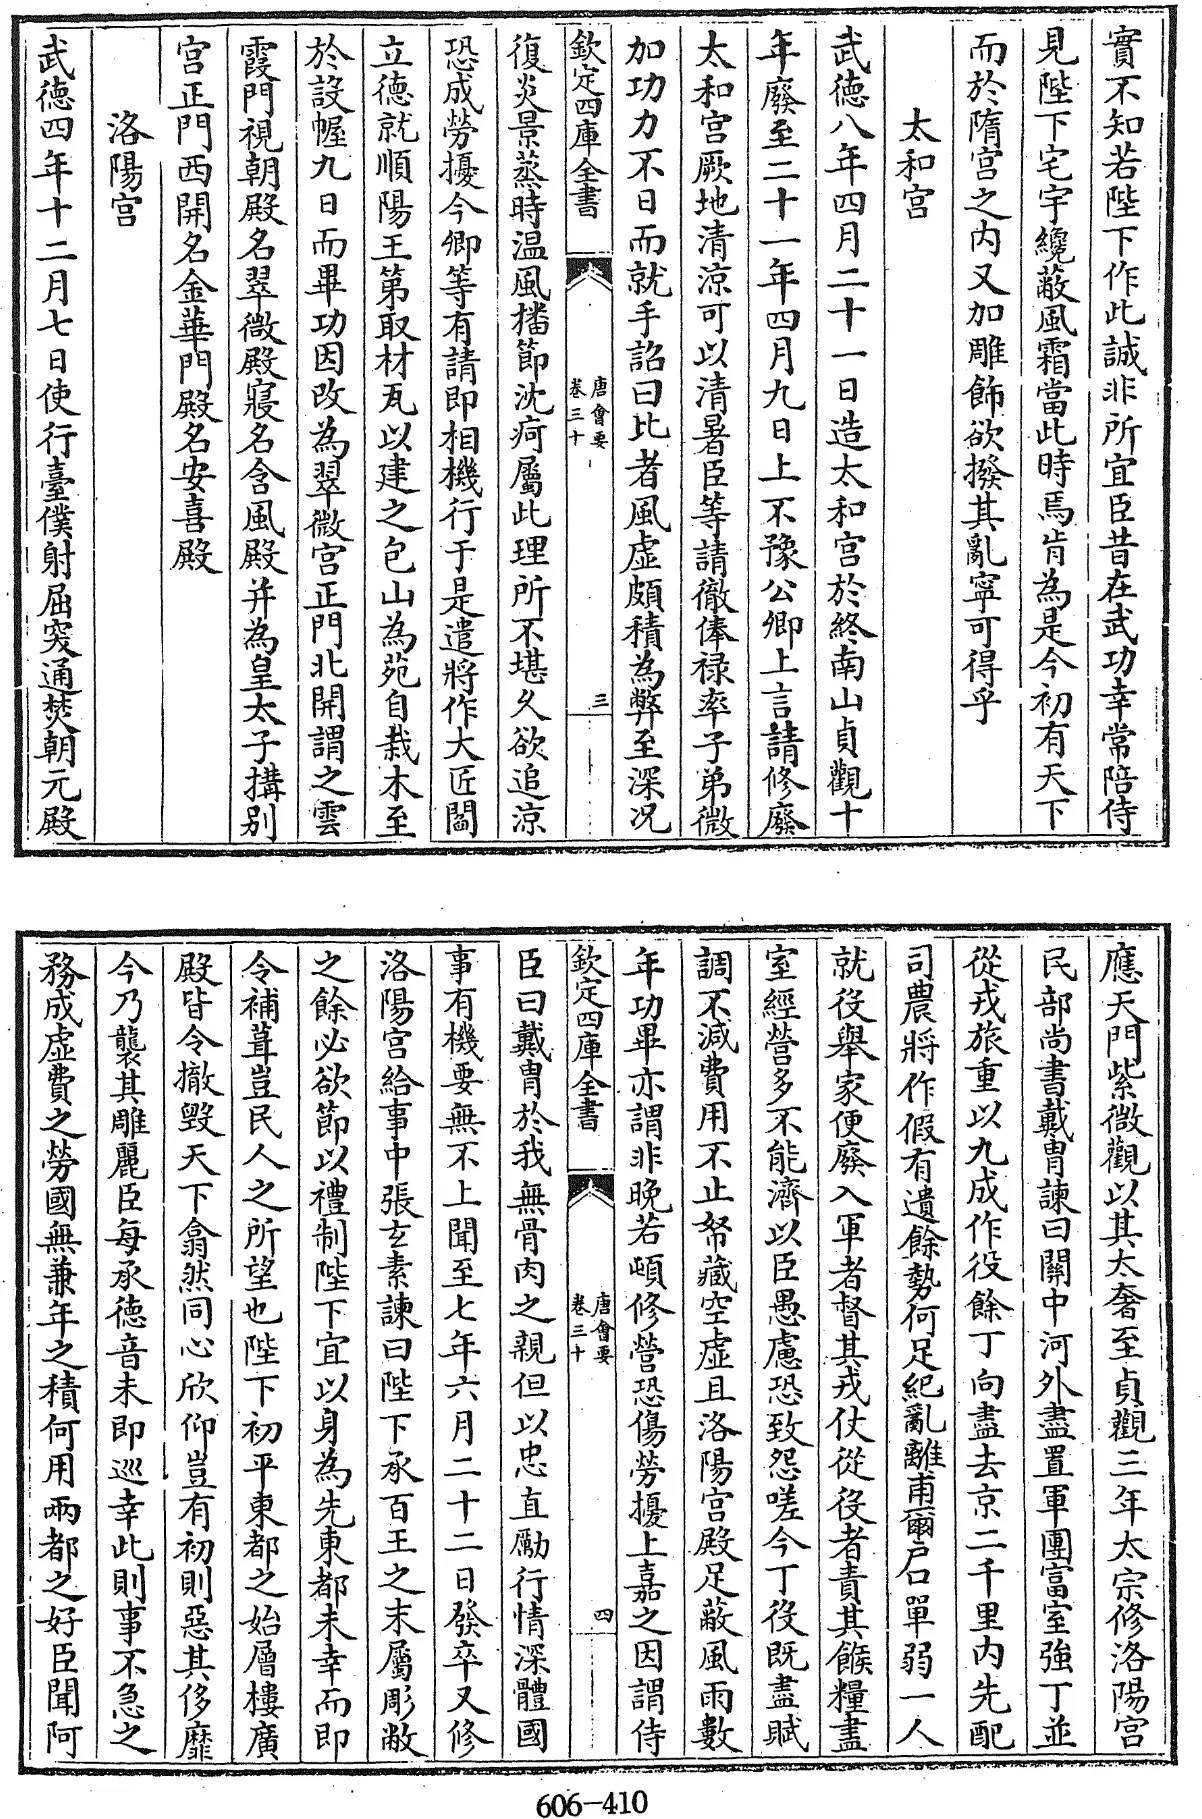 實不知若陛下作此誠非所宜臣昔在武功幸常陪侍
見陛下宅宇纔蔽風霜當此時焉肯為是今初有天下
而於隋宫之内又加雕飾欲撥其亂寧可得乎
太和宫
武徳八年四月二十一日造太和宫於終南山貞觀十
年廢至二十一年四月九日上不豫公卿上言請修廢
太和宫厥地清涼可以清暑臣等請徹俸禄率子弟微
加功力不日而就手詔曰比者風虚頗積為弊至深况
欽定四庫全書
唐會要
卷三十
三
復炎景蒸時温風擋節沈痾屬此理所不堪久欲追涼
恐成勞擾今卿等有請即相機行于是遣將作大匠閻
立徳就順陽王第取材瓦以建之包山為苑自裁木至
於設幄九日而畢功因改為翠微宫正門北開謂之雲
霞門視朝殿名翠微殿寢名含風殿并為皇太子搆别
宫正門西開名金華門殿名安喜殿
洛陽宫
武徳四年十二月七日使行臺僕射屈突通焚朝元殿
應天門紫微觀以其太奢至貞觀三年太宗修洛陽宫
民部尚書戴胄諫曰關中河外盡置軍團富室強丁並
從戎旅重以九成作役餘丁向盡去京二千里内先配
司農將作假有遺餘勢何足紀亂離甫爾户口單弱一人
就役舉家便廢入軍者督其戎仗從役者責其餱糧盡
室經營多不能濟以臣愚慮恐致怨嗟今丁役既盡賦
調不減費用不止帑藏空虚且洛陽宫殿足蔽風雨數
年功畢亦謂非晚若頓修營恐傷勞擾上嘉之因謂侍
欽定四庫全書
唐會要
卷三十
四
臣曰戴胄於我無骨肉之親但以忠直勵行情深體國
事有機要無不上聞至七年六月二十二日發卒又修
洛陽宫給事中張玄素諫曰陛下承百王之末屬彫敝
之餘必欲節以禮制陛下宜以身為先東都未幸而即
令補葺豈民人之所望也陛下初平東都之始層樓廣
殿皆令撤毁天下翕然同心欣仰豈有初則惡其侈靡
今乃襲其雕麗臣每承徳音未即廵幸此則事不急之
務成虚費之勞國無兼年之積何用兩都之好臣聞阿
606-410